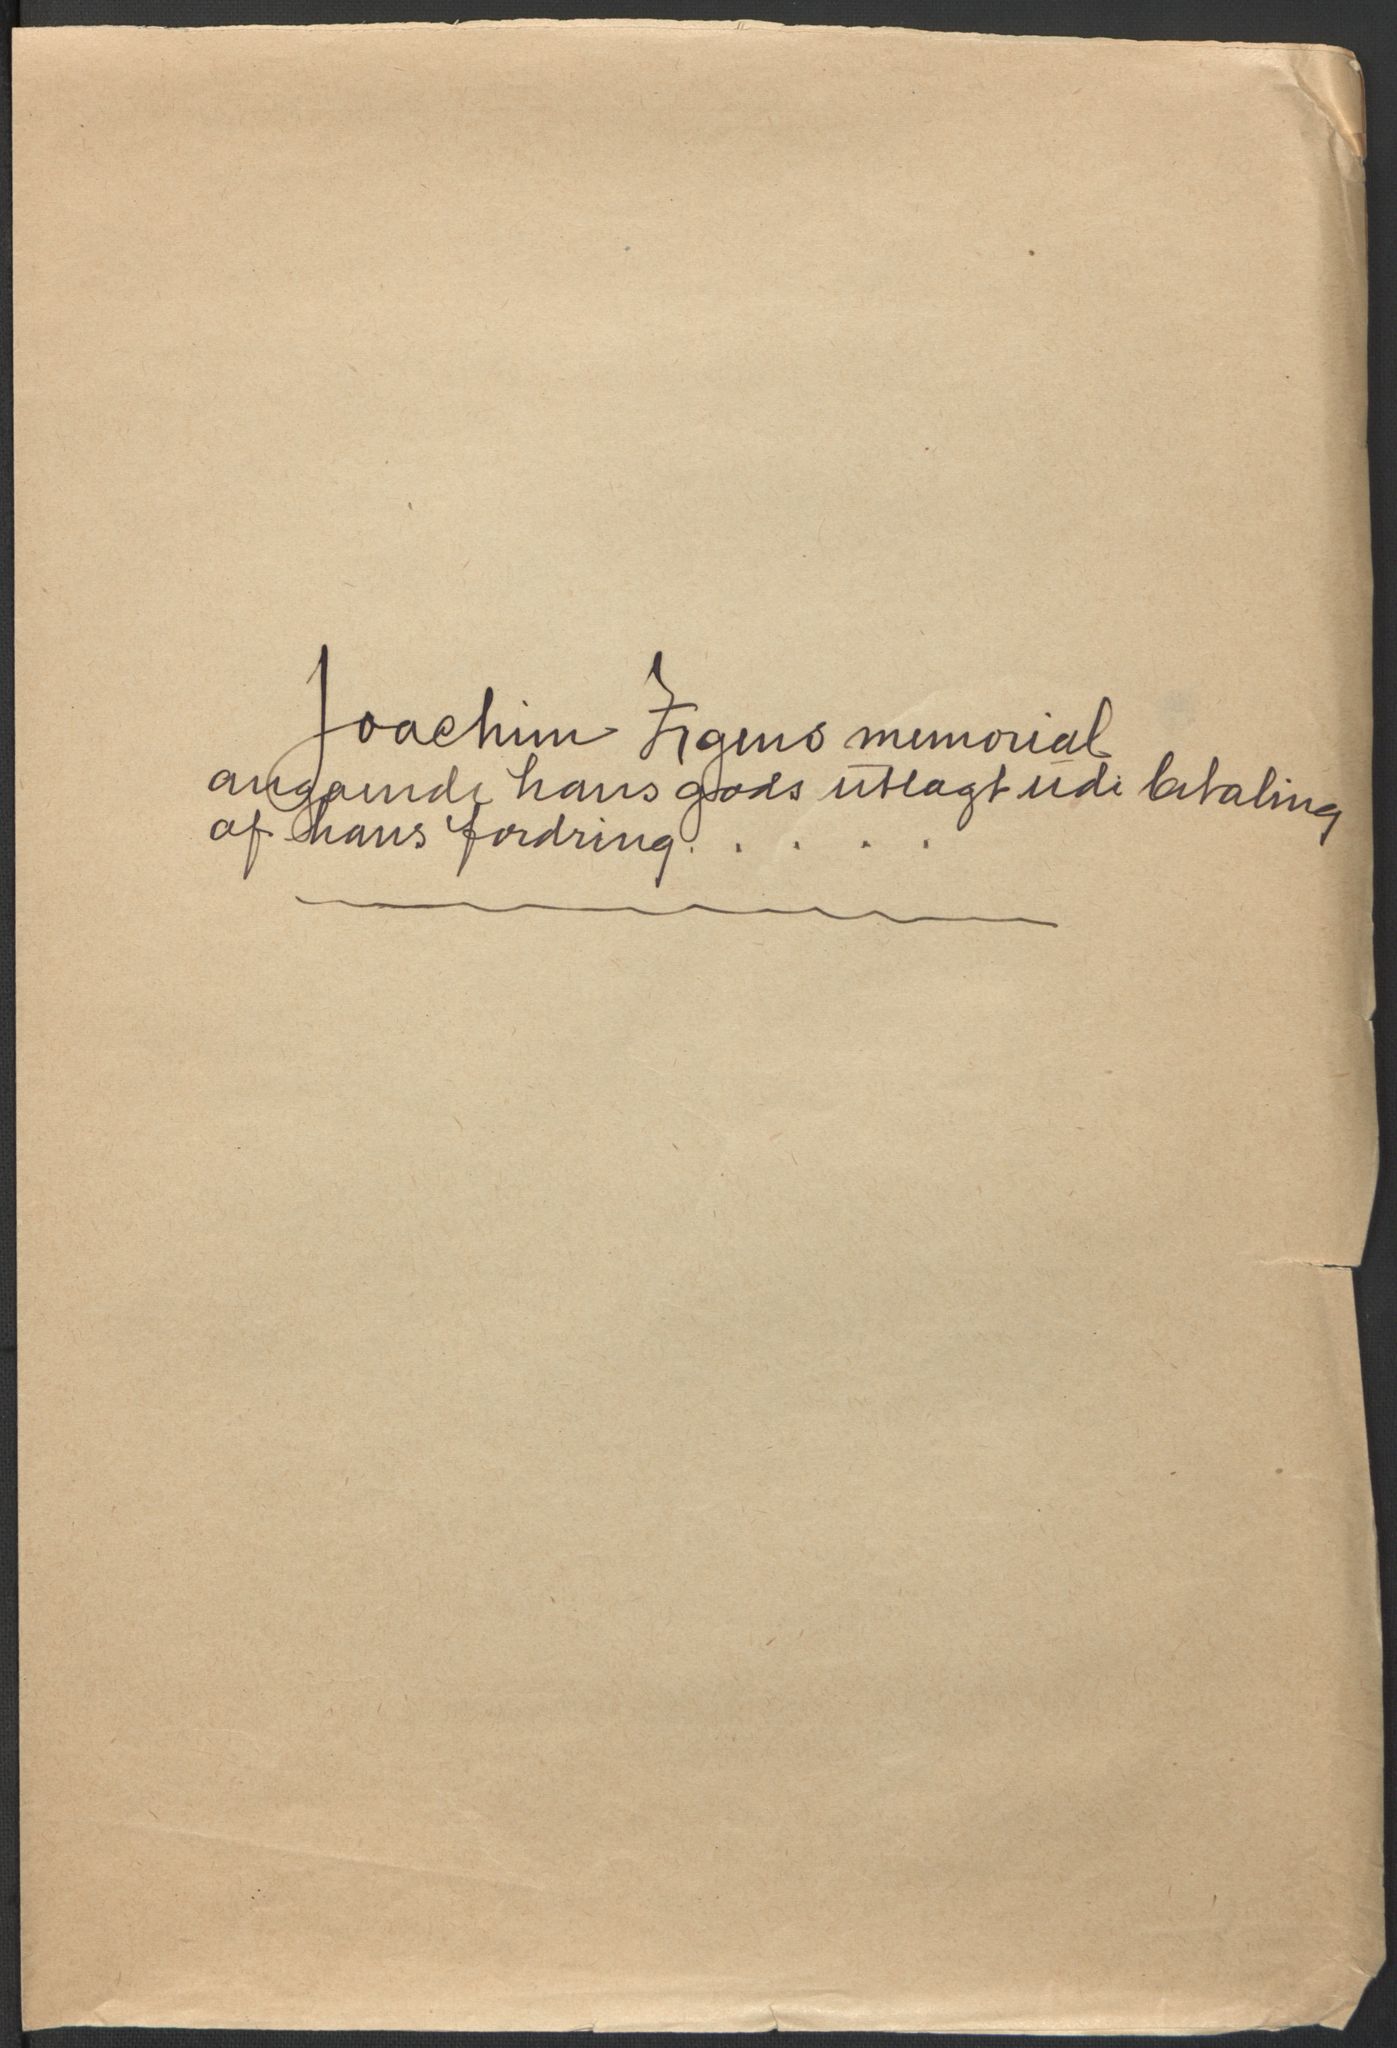 Joachim Irgens memorial
angaaende hans gods utlagt udi betaling
af hans fordring. . . . .